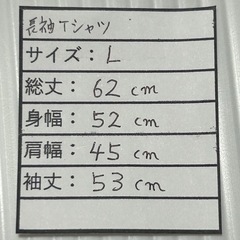 長袖Tシャツ
サイズ: L
総丈: 62cm
身幅: 52cm
肩幅: 45cm
袖丈: 53cm